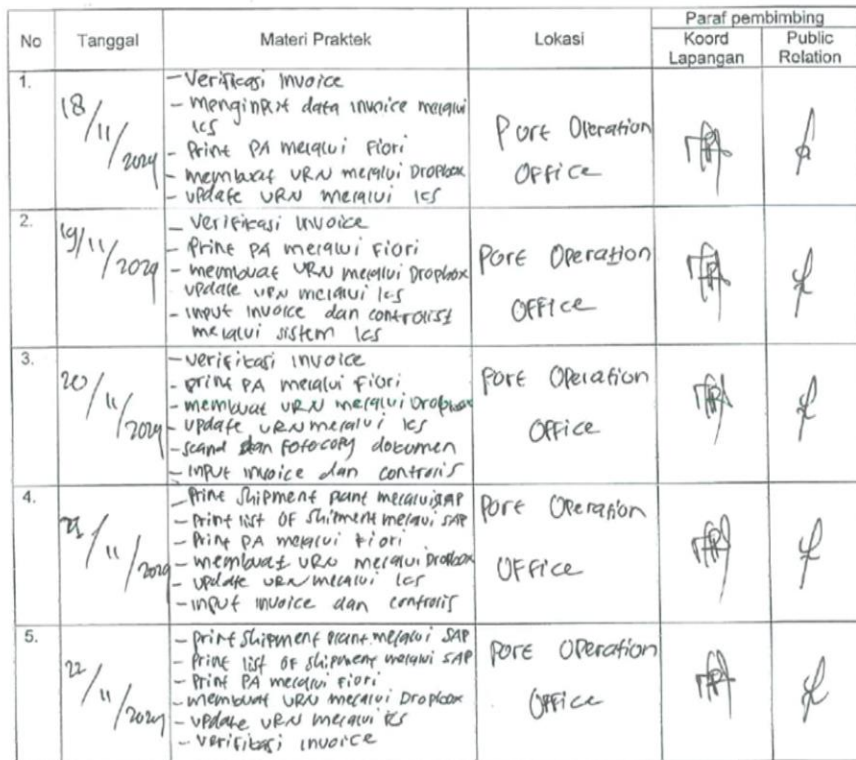 No Tanggal Materi Praktek Lokasi Paraf pembimbing
Koord Lapangan Public Relation
1.
18/11/2024
- Verifikasi Invoice
- Menginput data invoice melalui
Ics
- Print PA melalui Fiori
- membuat URN melalui Dropbox
- update URN melalui Ics
Port Operation
Office
2.
19/11/2024
- Verifikasi Invoice
- Print PA melalui Fiori
- membuat URN melalui Dropbox
update URN melalui Ics
- input Invoice dan controlist
melalui sistem Ics
Port Operation
Office
3.
20/11/2024
- verifikasi invoice
- print PA melalui Fiori
- membuat URN melalui Dropbox
- update URN melalui Ics
- scand dan Fotocopy dokumen
- input invoice dan controlis
Port Operation
Office
4.
21/11/2024
- Print Shipment plant melalui SAP
- Print list OF Shipment melalui SAP
- Print PA melalui Fiori
- membuat URN melalui Dropbox
- update URN melalui Ics
- input invoice dan controlis
Port Operation
Office
5.
22/11/2024
- print Shipment plant melalui SAP
- Print list OF shipment melalui SAP
- Print PA melalui Fiori
- membuat URN melalui Dropbox
- update URN melalui Ics
- verifikasi invoice
Port Operation
Office